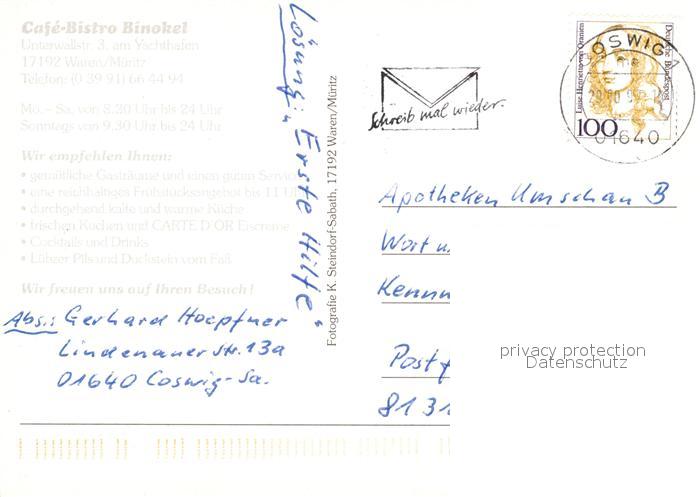 Café-Bistro Binokel
Unterwallstr. 3, am Yachthafen
17192 Waren/Müritz
Telefon: (0 39 91) 66 44 94
Mo. - Sa. von 8.20 Uhr bis 24 Uhr
Sonntags von 9.30 Uhr bis 24 Uhr
Wir empfehlen Ihnen:
• gemütliche Gasträume und einen guten Service
• eine reichhaltiges Frühstücksangebot bis 11 U
• durchgehend kalte und warme Küche
• frischen Kuchen und CARTE D'OR Eiscreme
• Cocktails und Drinks
• Lübzer Pils und Duckstein vom Faß
Wir freuen uns auf Ihren Besuch!
Abs.: Gerhard Hoepfner
Lindenauer Str. 13a
01640 Coswig-Sa.
Lösung: „Erste Hilfe"
Fotografie K. Steindorf-Sabath, 17192 Waren/Müritz
Schreib mal wieder.
Luise Henriette von Oranien
Deutsche Bundespost
100
OSWIG
01640
Apotheken Umschau B
Wort u.
Kennn
Postf
8131
privacy protection
Datenschutz